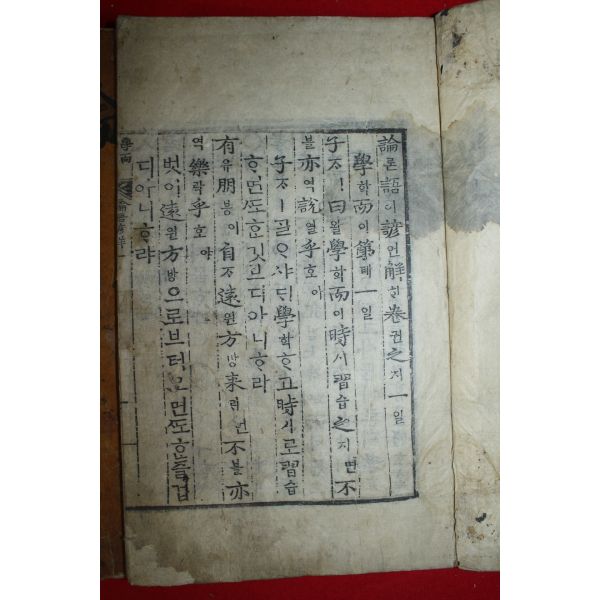 論론語어諺언解ᄒᆡ卷권之지一일
學학而이第뎨一일
子ᄌᆞㅣ曰왈學학而이時시習습之지면不
블亦역說열乎호아
子ᄌᆞㅣᄀᆞᆯᄋᆞ샤ᄃᆡ學학ᄒᆞ고時시로習습
ᄒᆞ면ᄯᅩᄒᆞᆫ깃브디아니ᄒᆞ랴
有유朋붕이自ᄌᆞ遠원方방來ᄅᆡ면不블亦
역樂락乎호야
벗이遠원方방으로브터오면ᄯᅩᄒᆞᆫ즐겁
디아니ᄒᆞ랴